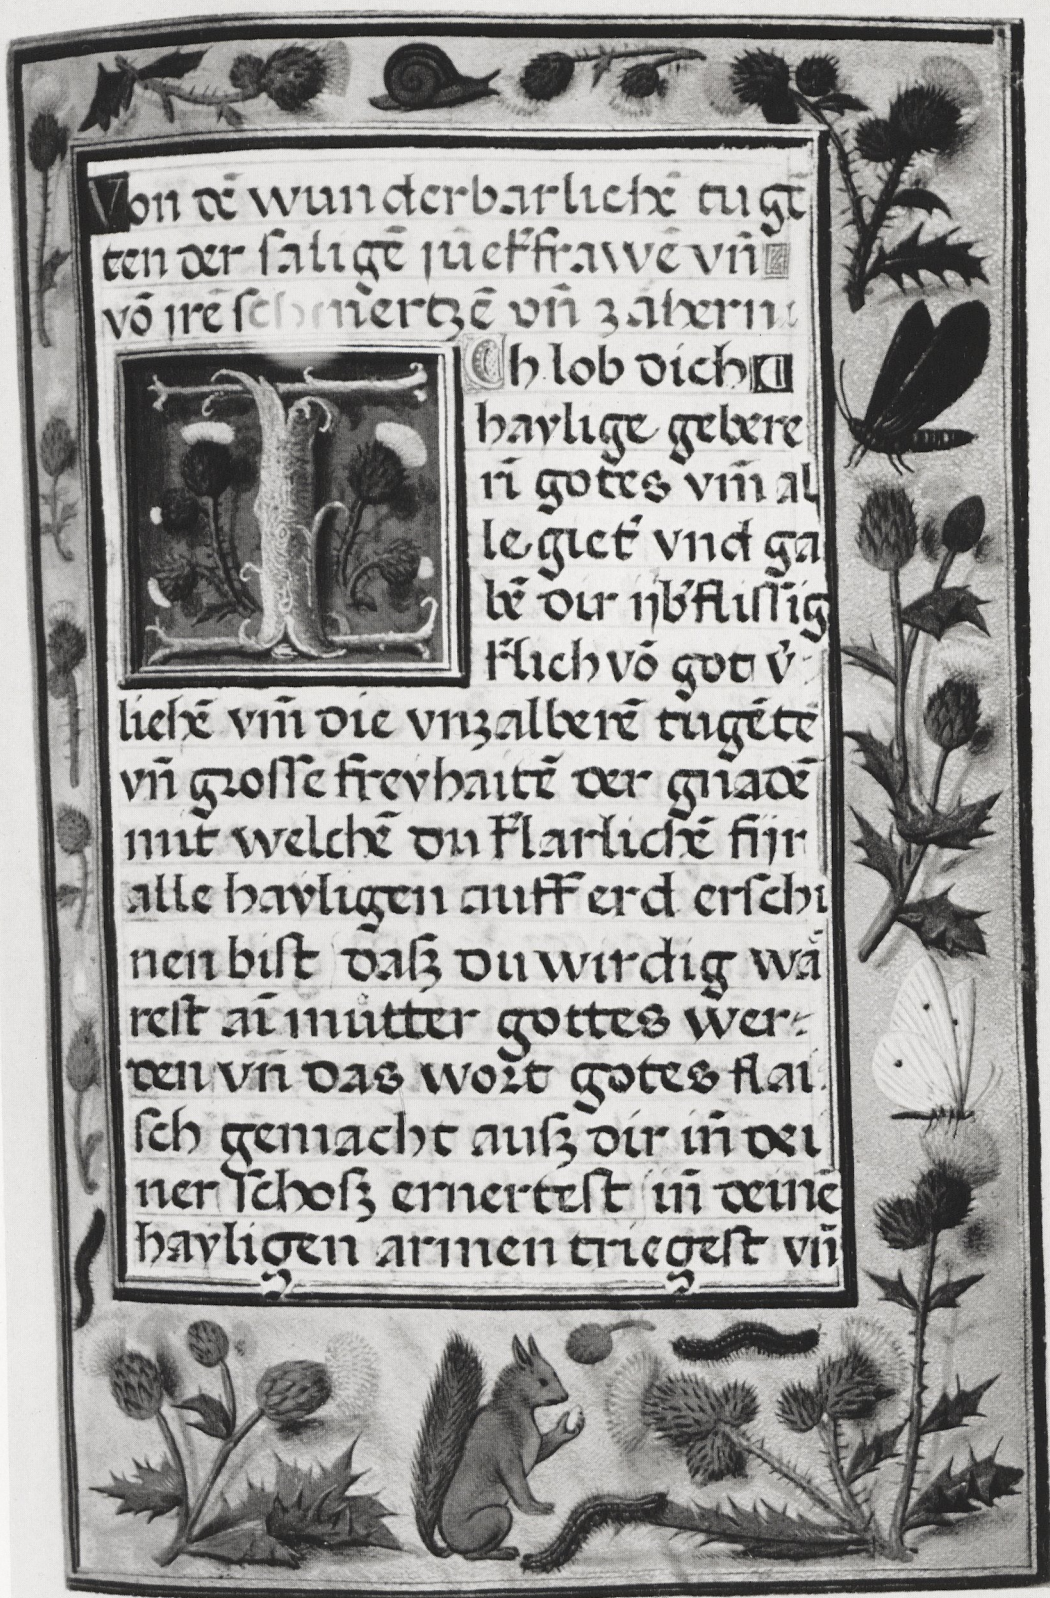 Von dē wunderbarlichē tugt
ten der saligē jūckfrawē vn̄
vō irē schmertzē vn̄ zahern
Ich lob dich
haylige gebere
rī gotes vn̄ al
le gict vnd ga
bē dir flissig
klich vō got v̓
lichē vn̄ die vnzalberē tugētē
vn̄ grosse freyhaitē der gnadē
mit welchē du klarlichē fijr
alle hayligen auff erd erschi
nen bist dasz du wirdig wå
rest aī můtter gottes wer-
den vn̄ das wort gotes flai
sch gemacht ausz dir in̄ dei
ner schosz ernertest in̄ deinē
hayligen armen triegest vn̄